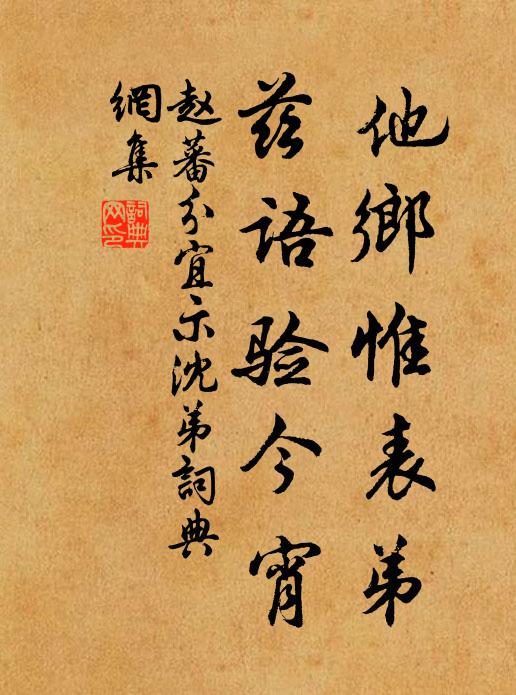 他鄉惟表弟
茲語验今宵
赵蕃分宜示沈弟詞典
網集
詞典
网印